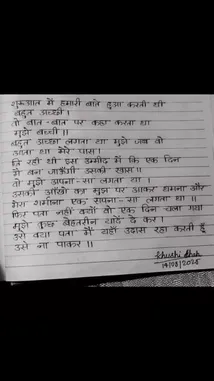 शुरुआत में हमारी बातें हुआ करती थी
बहुत अच्छी।
वो बात-बात पर कहा करता था
मुझे बच्ची।।
बहुत अच्छा लगता था मुझे जब वो
आता था मेरे पास।
जी रही थी इस उम्मीद में कि एक दिन
मैं बन जाऊँगी उसकी खास।
वो मुझे अपना-सा लगता था।
उसकी आँखों का मुझ पर आकर थमना और
मेरा शर्माना एक सपना-सा लगता था।।
फिर पता नहीं क्यों वो एक दिन चला गया
मुझे कुछ बेहतरीन यादें दे कर।
उसे क्या पता मैं यहाँ उदास रहा करती हूँ
उसे ना पाकर।।
Khushi